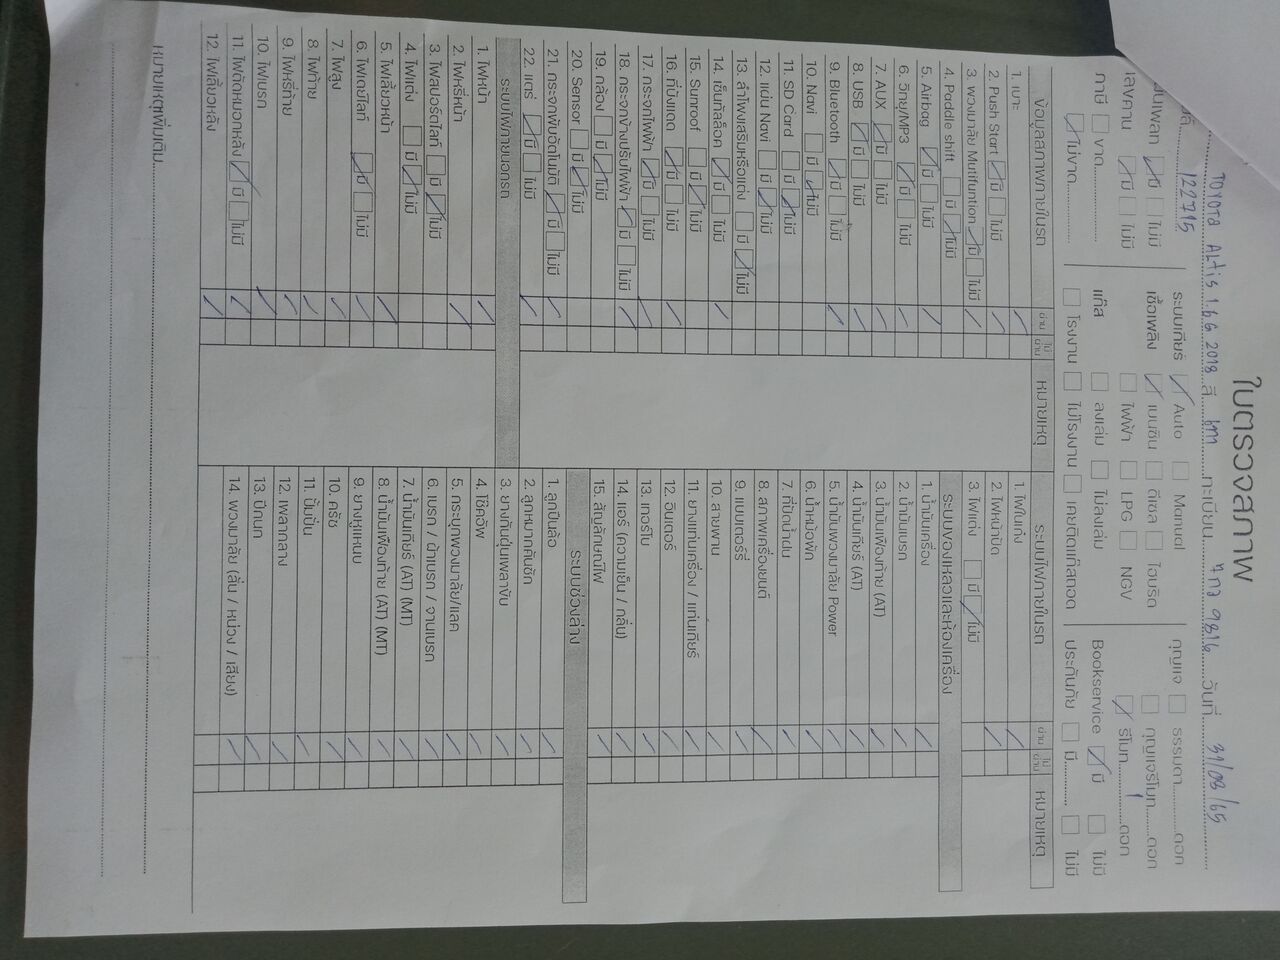 ใบตรวจสภาพ
TOYOTA ALtis 1.6 G 2018 สี เทา ทะเบียน 7กว 9816 วันที่ 31/08/65
122715
ระบบเกียร์ Auto Manual
กุญแจ ธรรมดา ดอก
มี ไม่มี
เชื้อเพลิง เบนซิน ดีเซล ไฮบริด
กุญแจรีโมท ดอก
มี ไม่มี
ไฟฟ้า LPG NGV
รีโมท 1 ดอก
ภาษี ขาด
แก๊ส ลงเล่ม ไม่ลงเล่ม
Bookservice มี ไม่มี
ไม่ขาด
โรงงาน ไม่โรงงาน เคยติดแก๊สถอด
ประกันภัย มี ไม่มี
ข้อมูลสภาพภายในรถ ผ่าน ไม่ผ่าน หมายเหตุ
1. เบาะ
2. Push Start มี ไม่มี
3. พวงมาลัย Mutifuntion มี ไม่มี
4. Peddle shift มี ไม่มี
5. Airbag มี ไม่มี
6. วิทยุ/MP3 มี ไม่มี
7. AUX มี ไม่มี
8. USB มี ไม่มี
9. Bluetooth มี ไม่มี
10. Navi มี ไม่มี
11. SD Card มี ไม่มี
12. แผ่น Navi มี ไม่มี
13. ลำโพงเสริมหรือแต่ง มี ไม่มี
14. เซ็นทัลล็อค มี ไม่มี
15. Sunroof มี ไม่มี
16. ที่บังแดด มี ไม่มี
17. กระจกไฟฟ้า มี ไม่มี
18. กระจกข้างปรับไฟฟ้า มี ไม่มี
19. กล้อง มี ไม่มี
20. Sensor มี ไม่มี
21. กระจกพับอัตโนมัติ มี ไม่มี
22. แตร่ มี ไม่มี
ระบบไฟภายนอกรถ
1. ไฟหน้า
2. ไฟหรี่หน้า
3. ไฟสปอร์ตไลท์ มี ไม่มี
4. ไฟแต่ง มี ไม่มี
5. ไฟเลี้ยวหน้า
6. ไฟเดย์ไลท์ มี ไม่มี
7. ไฟสูง
8. ไฟท้าย
9. ไฟหรี่ท้าย
10. ไฟเบรก
11. ไฟตัดหมอกหลัง มี ไม่มี
12. ไฟเลี้ยวหลัง
ระบบไฟภายในรถ ผ่าน ไม่ผ่าน หมายเหตุ
1. ไฟในเก๋ง
2. ไฟหน้าปัด
3. ไฟแต่ง มี ไม่มี
ระบบของเหลวและห้องเครื่อง
1. น้ำมันเครื่อง
2. น้ำมันเบรก
3. น้ำมันเฟืองท้าย (AT)
4. น้ำมันเกียร์ (AT)
5. น้ำมันพวงมาลัย Power
6. น้ำหม้อพัก
7. ที่ปัดน้ำฝน
8. สภาพเครื่องยนต์
9. แบตเตอร์รี่
10. สายพาน
11. ยางแท่นเครื่อง / แท่นเกียร์
12. อินเตอร์
13. เทอร์โบ
14. แอร์ (ความเย็น / กลิ่น)
15. สัญลักษณ์ไฟ
ระบบช่วงล่าง
1. ลูกปืนล้อ
2. ลูกหมากคันชัก
3. ยางกันฝุ่นเพลาขับ
4. โช๊คอัพ
5. กระปุกพวงมาลัย/แลค
6. เบรก / ผ้าเบรก / จานเบรก
7. น้ำมันเกียร์ (AT) (MT)
8. น้ำมันเฟืองท้าย (AT) (MT)
9. ยางหูแหนบ
10. ครัช
11. ปั๊มปั่น
12. เพลากลาง
13. ปีกนก
14. พวงมาลัย (สั่น / หน่วง / เสียง)
หมายเหตุเพิ่มเติม